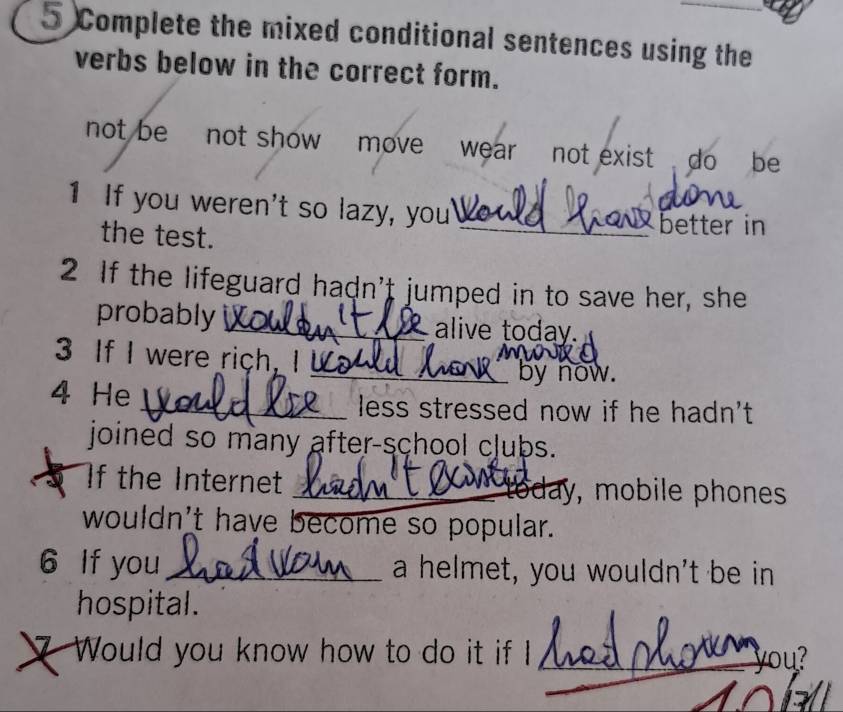 5 Complete the mixed conditional sentences using the
verbs below in the correct form.
not be not show move wear not exist do be
1 If you weren't so lazy, you would have done better in
the test.
2 If the lifeguard hadn't jumped in to save her, she
probably wouldn't be alive today.
3 If I were rich, I would have moved by now.
4 He would be less stressed now if he hadn't
joined so many after-school clubs.
5 If the Internet hadn't existed today, mobile phones
wouldn't have become so popular.
6 If you had worn a helmet, you wouldn't be in
hospital.
7 Would you know how to do it if I had shown you?